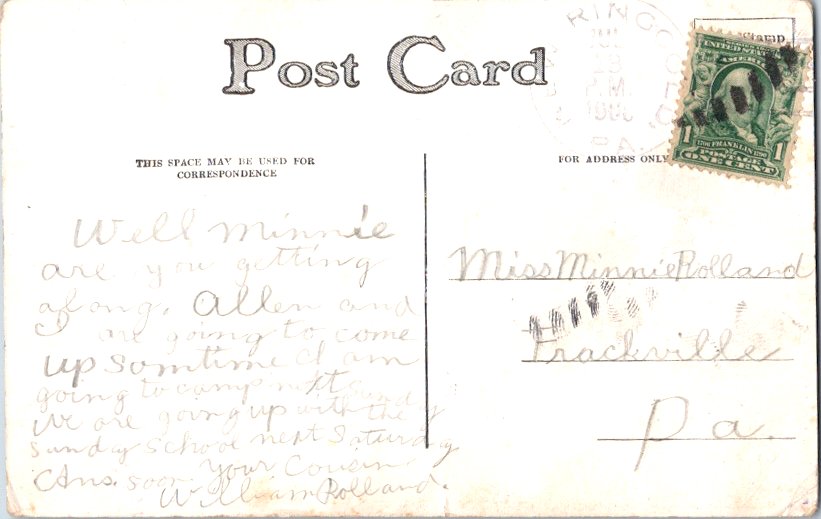 Post Card
RINGGO
P.M.
PA.
Stamp
UNITED STATES
AMERICA
1 1706 FRANKLIN 1790 1
POSTAGE
ONE CENT
THIS SPACE MAY BE USED FOR
CORRESPONDENCE
FOR ADDRESS ONLY
Well Minnie
are you getting
along. Allen and
I are going to come
up somtime I am
going to camp
We are going up with the
Sunday School next Saturday
Ans. soon your Cousin
William Rolland.
Miss Minnie Rolland
Trackville
Pa.